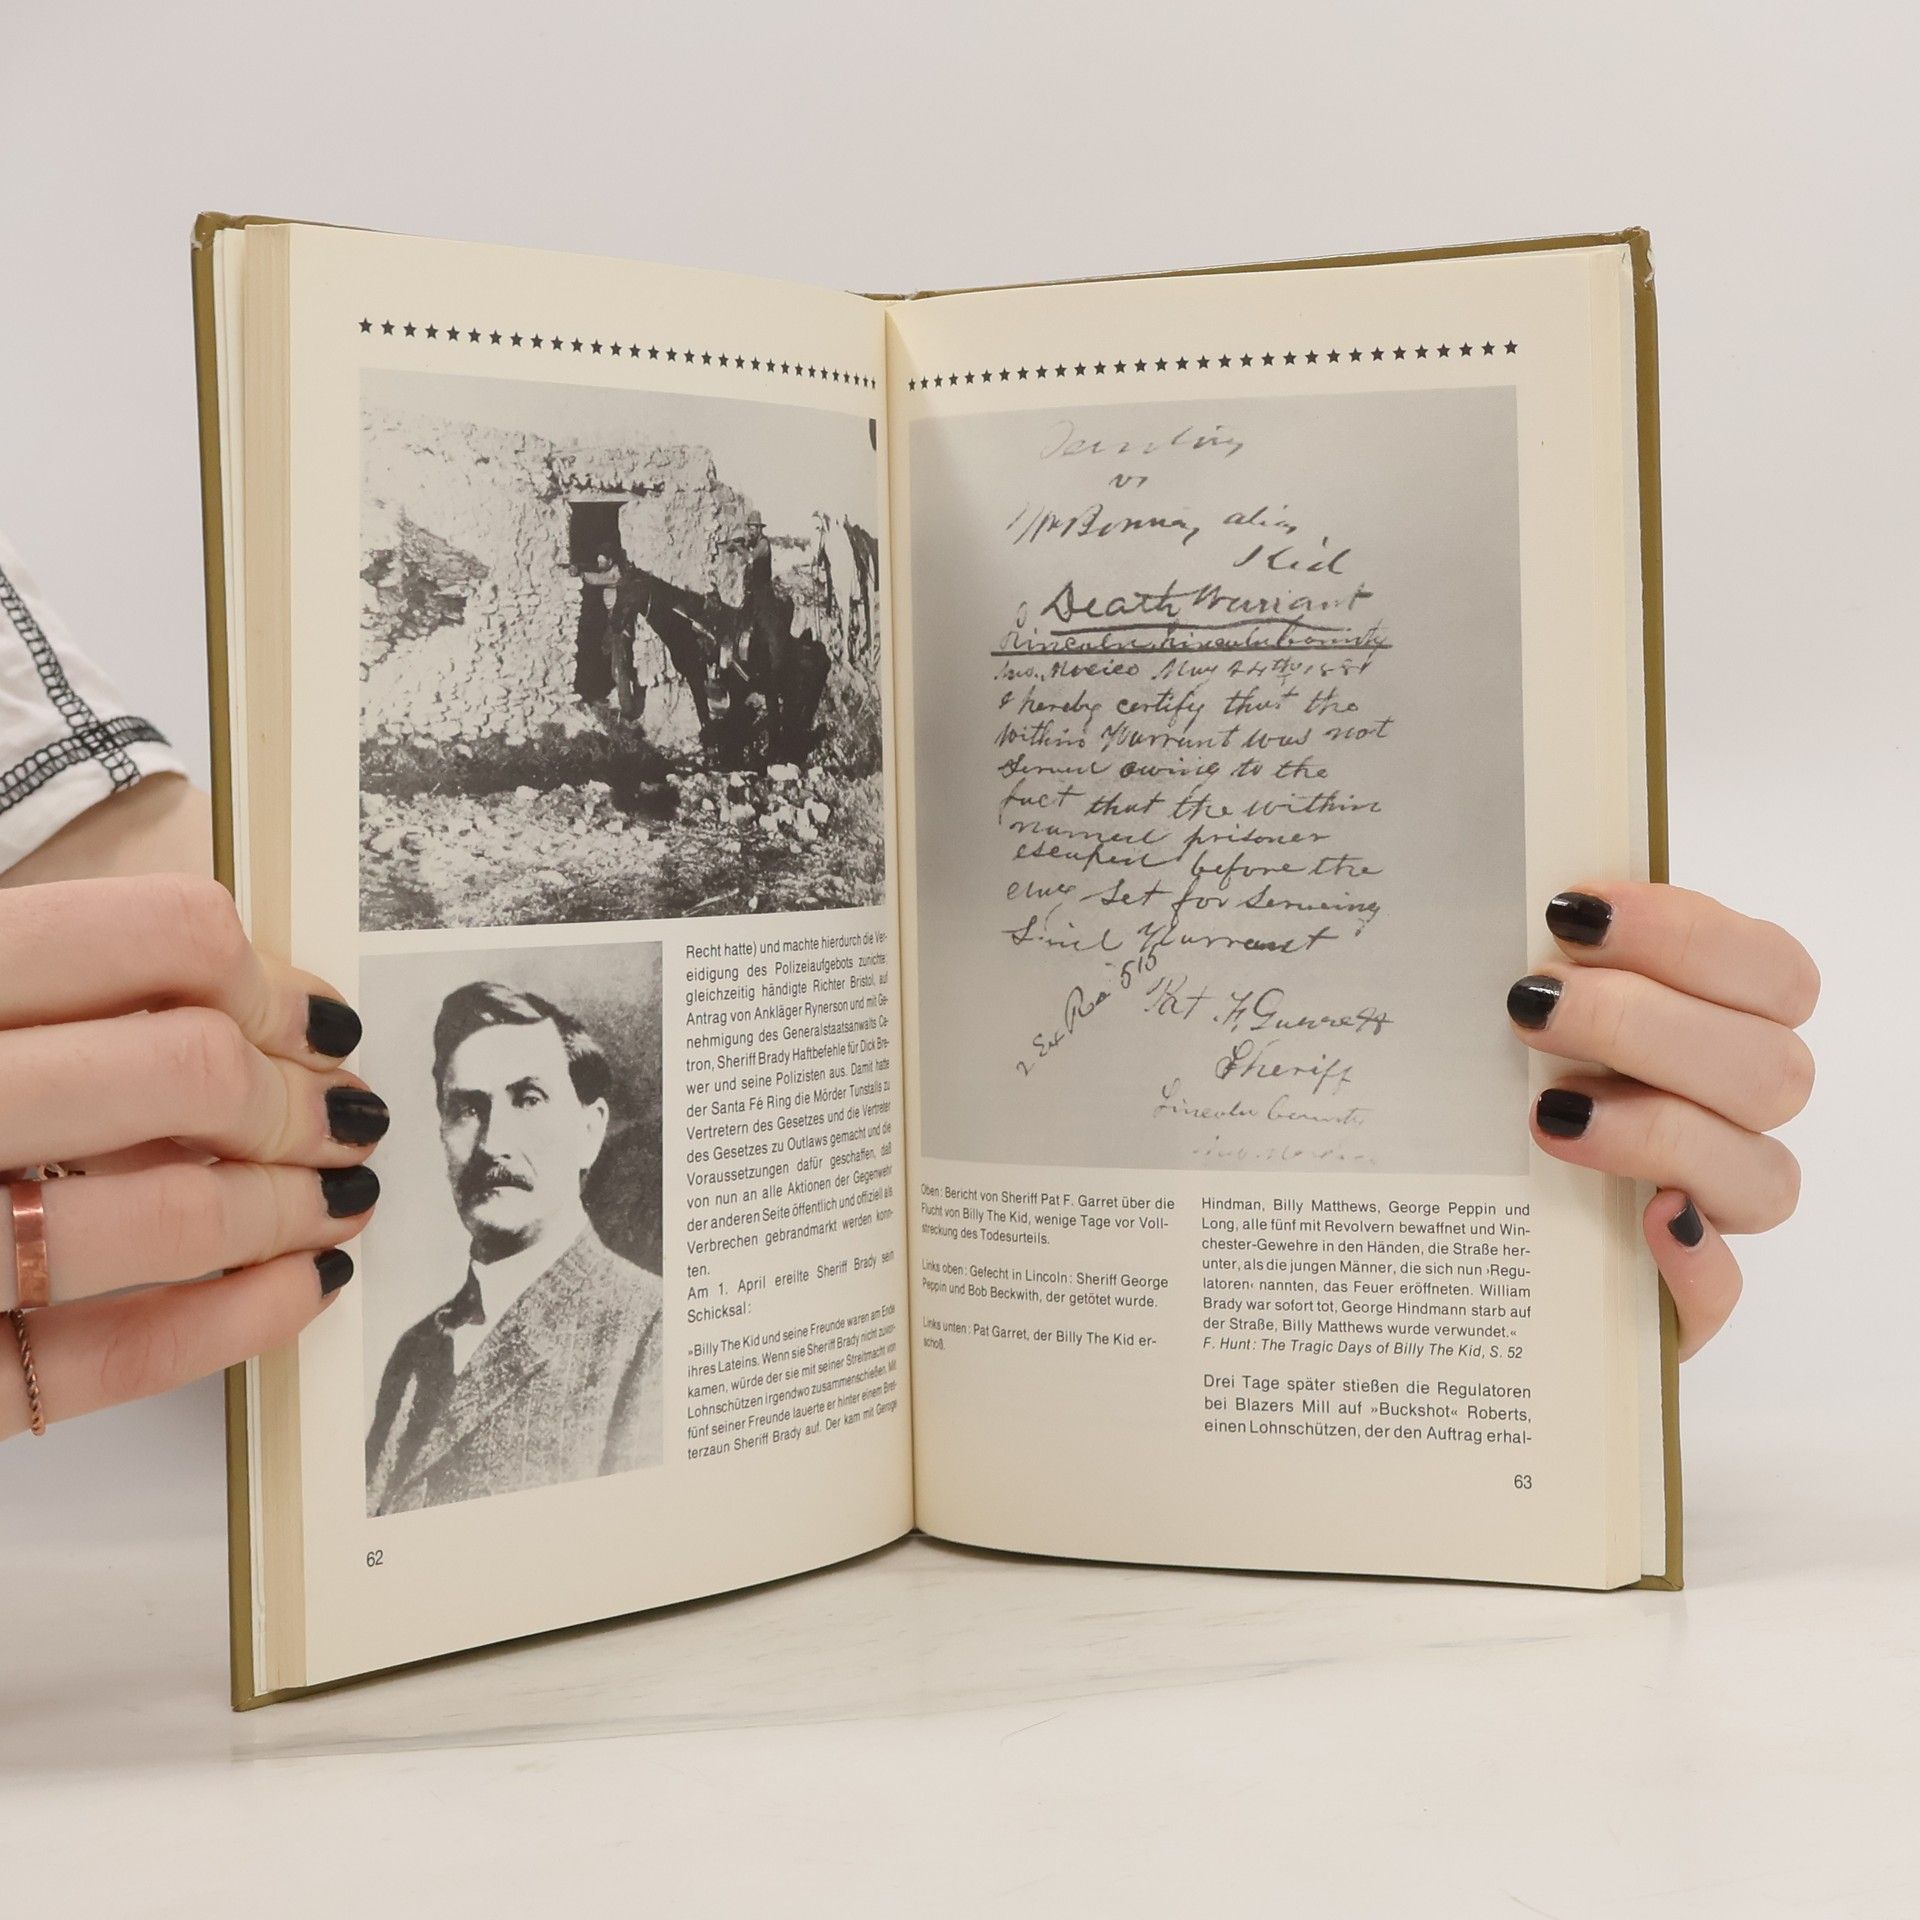 Recht hatte) und machte hierdurch die Ver-
eidigung des Polizeiaufgebots zunichte;
gleichzeitig händigte Richter Bristol, auf
Antrag von Ankläger Rynerson und mit Ge-
nehmigung des Generalstaatsanwalts Ca-
tron, Sheriff Brady Haftbefehle für Dick Bre-
wer und seine Polizisten aus. Damit hatte
der Santa Fé Ring die Mörder Tunstalls zu
Vertretern des Gesetzes und die Vertreter
des Gesetzes zu Outlaws gemacht und die
Voraussetzungen dafür geschaffen, daß
von nun an alle Aktionen der Gegenwehr
der anderen Seite öffentlich und offiziell als
Verbrechen gebrandmarkt werden konn-
ten.
Am 1. April ereilte Sheriff Brady sein
Schicksal:
»Billy The Kid und seine Freunde waren am Ende
ihres Lateins. Wenn sie Sheriff Brady nicht zuvor-
kamen, würde der sie mit seiner Streitmacht von
Lohnschützen irgendwo zusammenschießen. Mit
fünf seiner Freunde lauerte er hinter einem Bret-
terzaun Sheriff Brady auf. Der kam mit George
62
vs
Wm Bonney alias
Kid
Death Warrant
Lincoln, Lincoln County
New Mexico May 24th 1881
I hereby certify that the
within Warrant was not
served owing to the
fact that the within
named prisoner
escaped before the
day set for serveing
Said Warrant
Pat F. Garrett
Sheriff
Lincoln County
New Mexico
Oben: Bericht von Sheriff Pat F. Garret über die
Flucht von Billy The Kid, wenige Tage vor Voll-
streckung des Todesurteils.
Links oben: Gefecht in Lincoln: Sheriff George
Peppin und Bob Beckwith, der getötet wurde.
Links unten: Pat Garret, der Billy The Kid er-
schoß.
Hindman, Billy Matthews, George Peppin und
Long, alle fünf mit Revolvern bewaffnet und Win-
chester-Gewehre in den Händen, die Straße her-
unter, als die jungen Männer, die sich nun ›Regu-
latoren‹ nannten, das Feuer eröffneten. William
Brady war sofort tot, George Hindmann starb auf
der Straße, Billy Matthews wurde verwundet.«
F. Hunt: The Tragic Days of Billy The Kid, S. 52
Drei Tage später stießen die Regulatoren
bei Blazers Mill auf »Buckshot« Roberts,
einen Lohnschützen, der den Auftrag erhal-
63